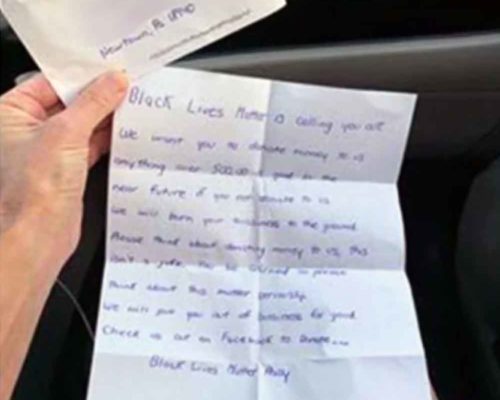 Newtown, PA 18940
Black Lives Matter is calling you out
We want you to donate money to us
anything over 500.00 is good in the
near future if you not donate to us
we will burn your business to the ground
Please think about donating money to us, this
isn't a joke. You be warned in person
Think about this matter
we will put you out of business for good
Check us out on Facebook to Donate...
Black Lives Matter